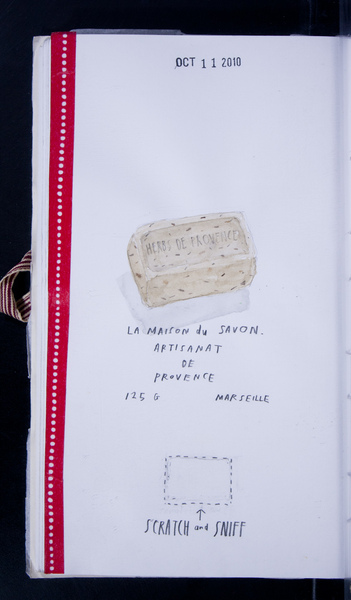 OCT 11 2010
HERBS DE PROVENCE
LA MAISON du SAVON.
ARTISANAT
DE
PROVENCE
125 G MARSEILLE
SCRATCH and SNIFF